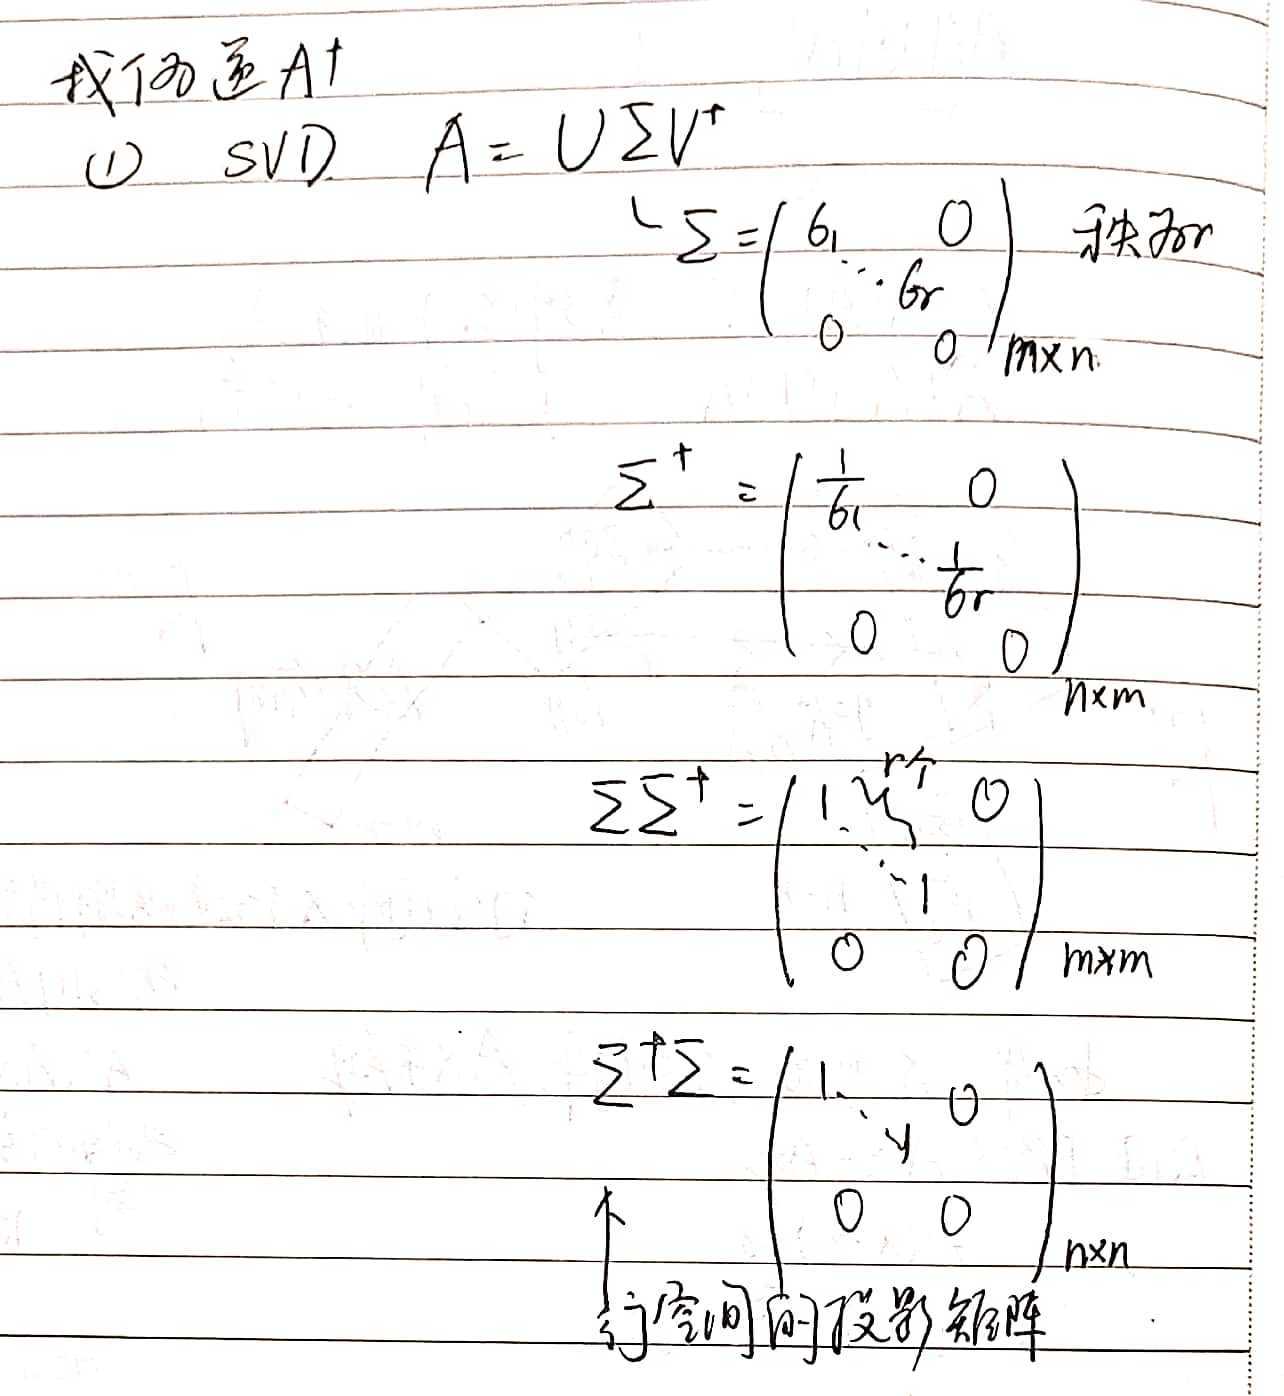 找伪逆A⁺
① SVD A = UΣV⁺
Σ = ( σ₁ 0 ⋱ σr 0 0 ) m×n 秩为r
Σ⁺ = ( 1/σ₁ 0 ⋱ 1/σr 0 0 ) n×m
r个
ΣΣ⁺ = ( 1 0 ⋱ 1 0 0 ) m×m
Σ⁺Σ = ( 1 0 ⋱ 1 0 0 ) n×n
行空间的投影矩阵